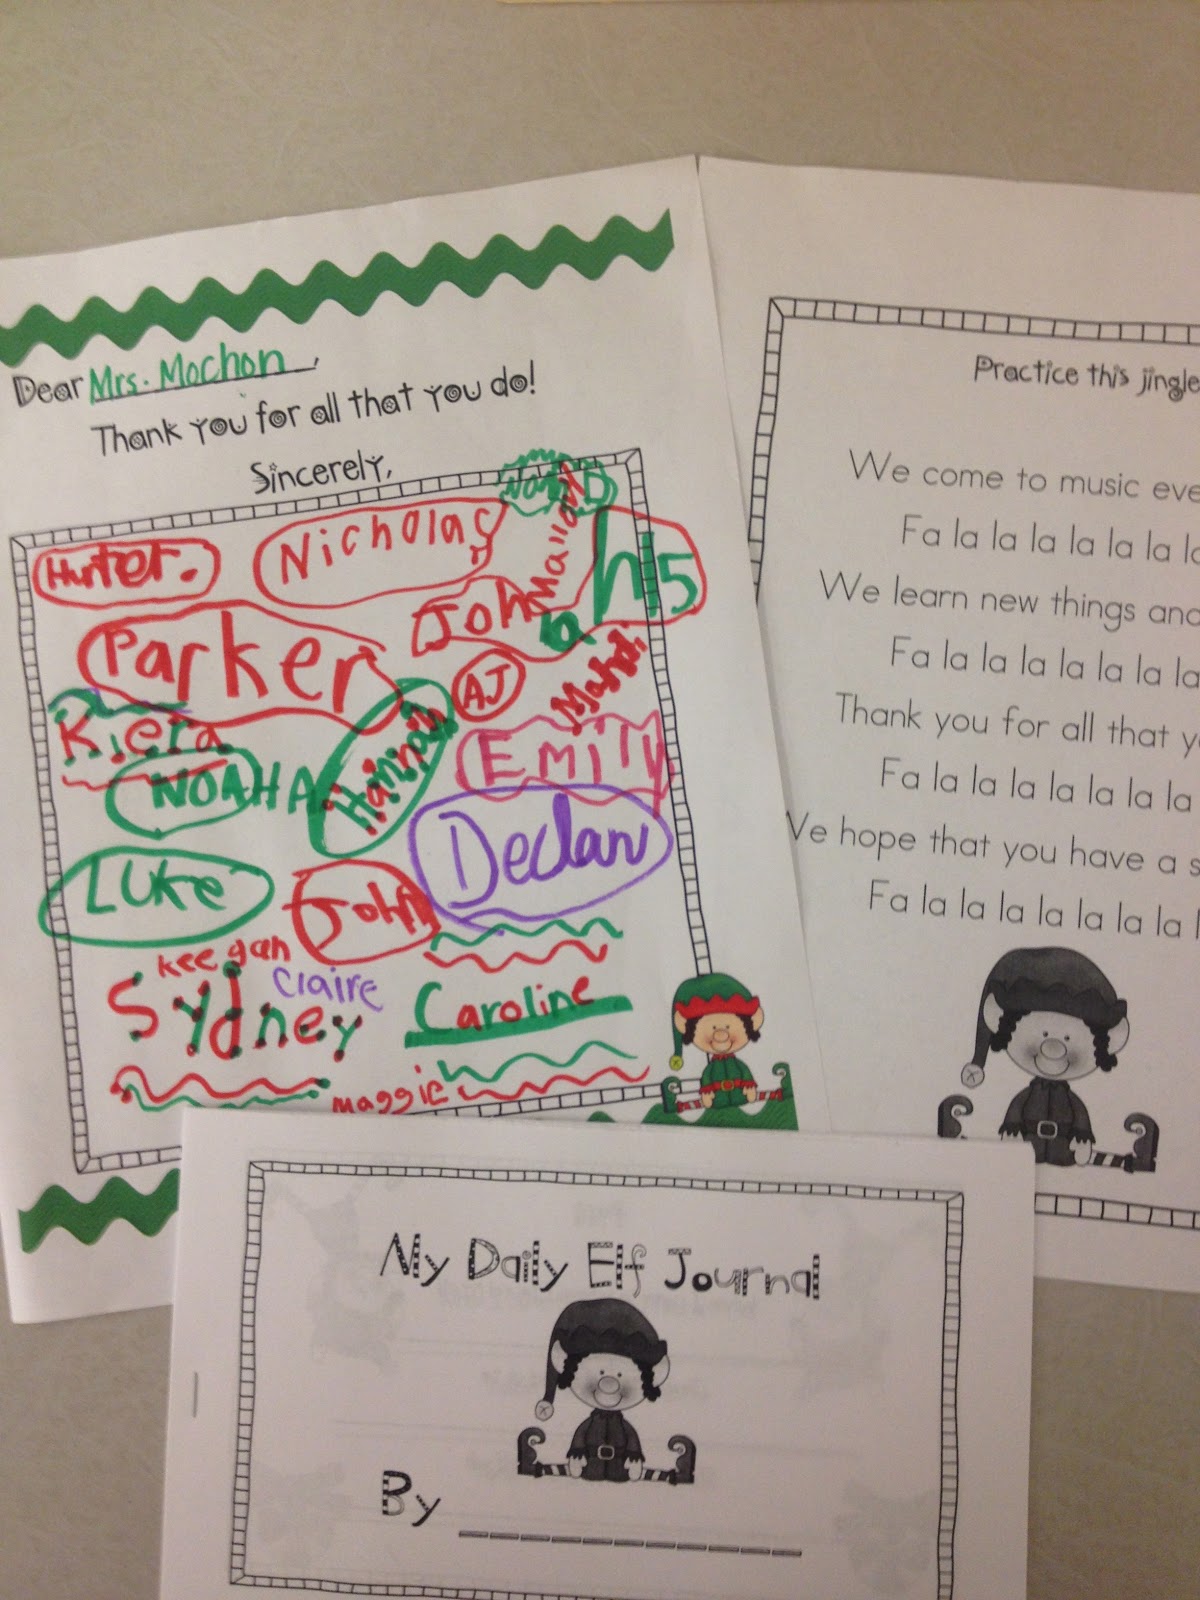 Dear Mrs. Mochon,
Thank you for all that you do!
Sincerely,
Hunter.
Nicholas
Parker
John
AJ
Kiera
NOAHA
Hannah
Emily
Declan
Luke
John
Keegan
Claire
Sydney
Caroline
maggie
Practice this jingle
We come to music eve
Fa la la la la la la la
We learn new things and
Fa la la la la la la la
Thank you for all that y
Fa la la la la la la la
We hope that you have a s
Fa la la la la la la la l
My Daily Elf Journal
By